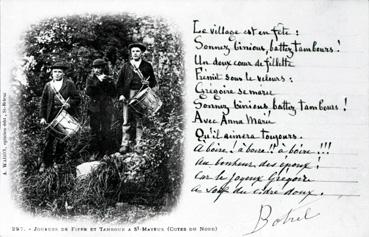 Le village est en fête :
Sonnez binious, battez tambours !
Un doux cœur de fillette
Frémit sous le velours :
Grégoire se marie
Sonnez binious, battez tambours !
Avec Anna Marie
Qu'il aimera toujours.
A boire ! à boire !! à boire !!!
Au bonheur des époux !
Car le joyeux Grégoire
A soif du cidre doux.
Botrel
A. WARON, St-Brieuc
297. - JOUEURS DE FIFRE ET TAMBOUR A St-MAYEUX (COTES DU NORD)